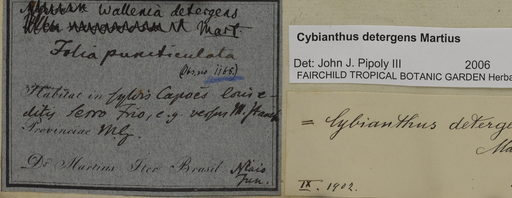 Wallenia detergens
Mart.
Folia punctulata
(Hs. no 1166.)
Habitat in sylvis Capoës
ditis Serro Frio, e.g. versus
Provinciae M.G.
Dr Martius Iter Brasil. Maio
Jun.
Cybianthus detergens Martius
Det: John J. Pipoly III 2006
FAIRCHILD TROPICAL BOTANIC GARDEN Herba
= Cybianthus deterge
Ma
IX. 1902.